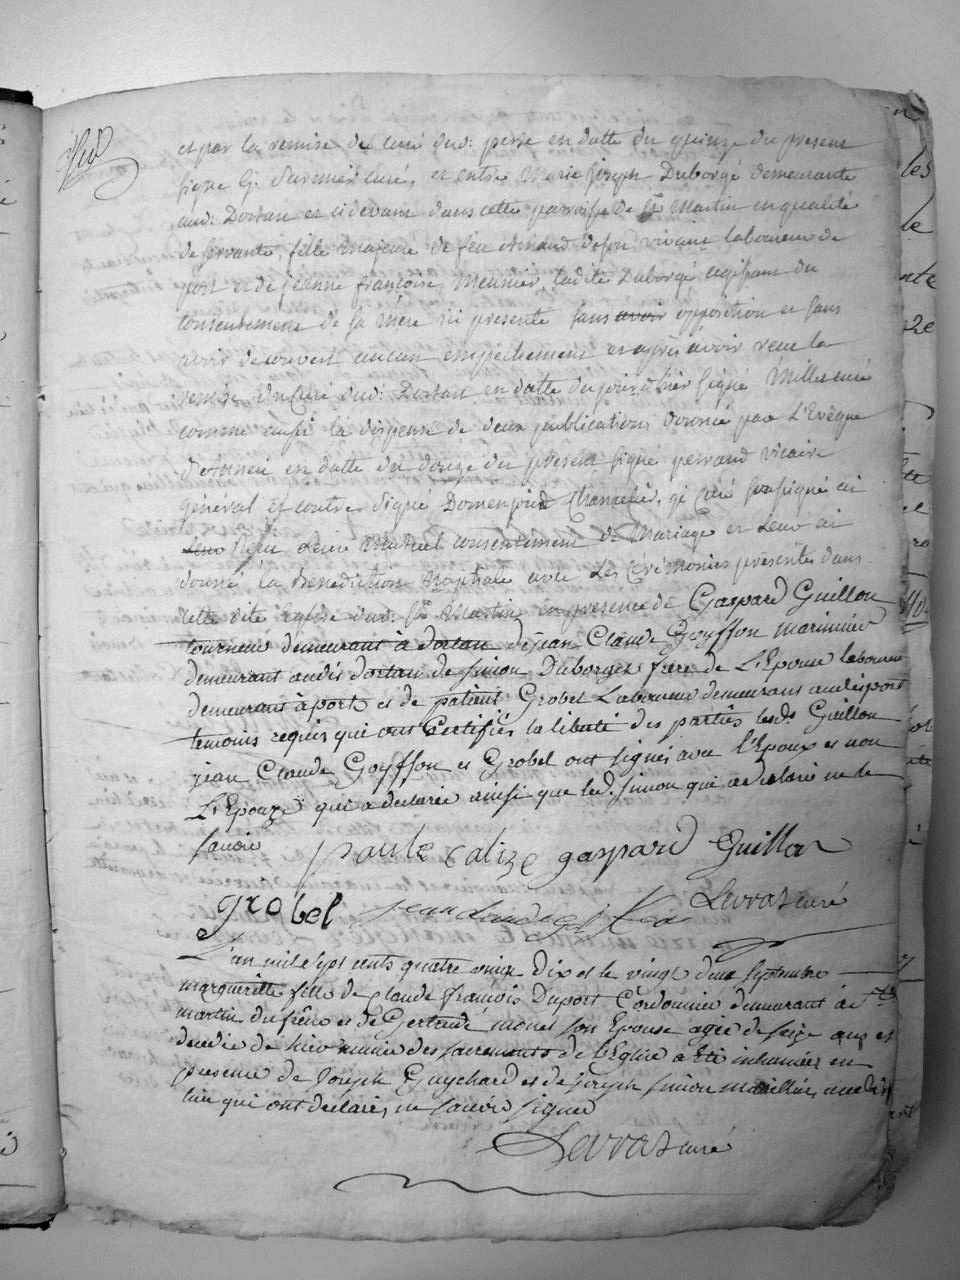 et par la remise de curé dud: perse en datte du quinze du present
signé G. curé, et entre Marie Joseph Duborgé demeurante
aud: Dortan et cidevant dans cette parroisse de St Martin en qualité
de servante, fille majeure de feu de son vivant laboureur de
port et de jeanne françoise Meunier, ladite Duborgé agissant du
consentement de sa mere ici presente sans avoir opposition et sans
avoir decouvert aucun empêchement et après avoir veu la
remise du Curé dud: Dortan en datte du jourd'hier signé Millet curé
comme aussi la dispense de deux publications donnée par L'Evêque
en datte du douze du present signé perraud vicaire
général et contre signé Domenjoud Chancelier, je Curé soussigné ai
leur reçu Leur Mutuel consentement de Mariage et Leur ai
donné la Benediction Nuptiale avec Les Cérémonies présentes dans
cette dite Eglise dud: St Martin en presence de Gaspard Guillon
tourneur demeurant à dortan de jean Claude Goyffon marinier
demeurant audit dortan de simon Duborget frere de L'Epouse laboureur
demeurant à port et de patient Grobel Laboureur demeurant audit port
temoins requis qui ont Certifiés la liberté des parties lesds Guillon
jean Claude Goyffon et Grobel ont signés avec l'Epoux et non
L'Epouze qui a declarée ainsi que led. simon qui a declaré ne le
savoir
gaspard Guillon
grobel jean claude Levrat curé
L'an mil sept cents quatre vingt Dix et le vingt deux septembre
marguerite fille de Claude françois Duport Cordonnier demeurant à St
martin du frêne et de Gertrude monet son Epouse agée de seize ans et
decedée de hier munie des sacrements de l'Eglise a Eté inhumée en
presence de Joseph Guychard et de joseph simon maillier audit
lieu qui ont declarés ne savoir signer
Levrat curé